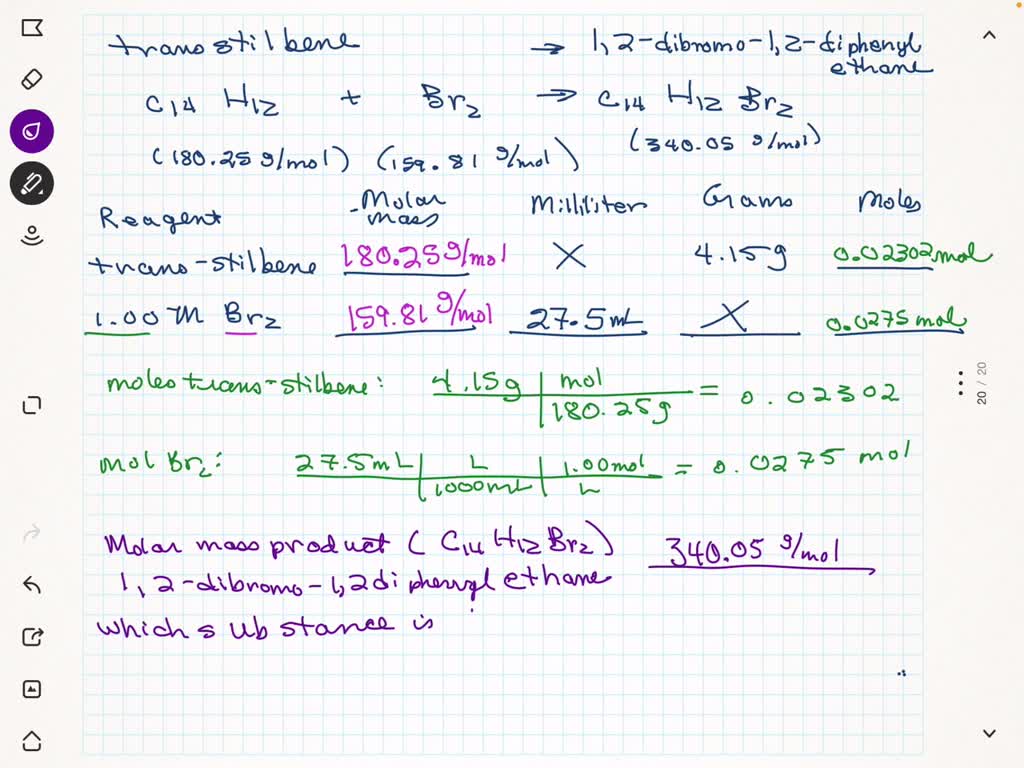 trans stilbene → 1,2-dibromo-1,2-diphenyl ethane
C14 H12 + Br2 → C14 H12 Br2
(180.25 g/mol) (159.81 g/mol) (340.05 g/mol)
Reagent Molar mass Milliliter Grams Moles
trans-stilbene 180.25 g/mol X 4.15g 0.02302 mol
1.00 M Br2 159.81 g/mol 27.5 mL X 0.0275 mol
moles trans-stilbene: 4.15g | mol = 0.02302
180.25g
mol Br2: 27.5mL | L | 1.00mol = 0.0275 mol
1000mL | L
Molar mass product (C14 H12 Br2) 340.05 g/mol
1,2-dibromo-1,2diphenyl ethane
which substance is
20 / 20